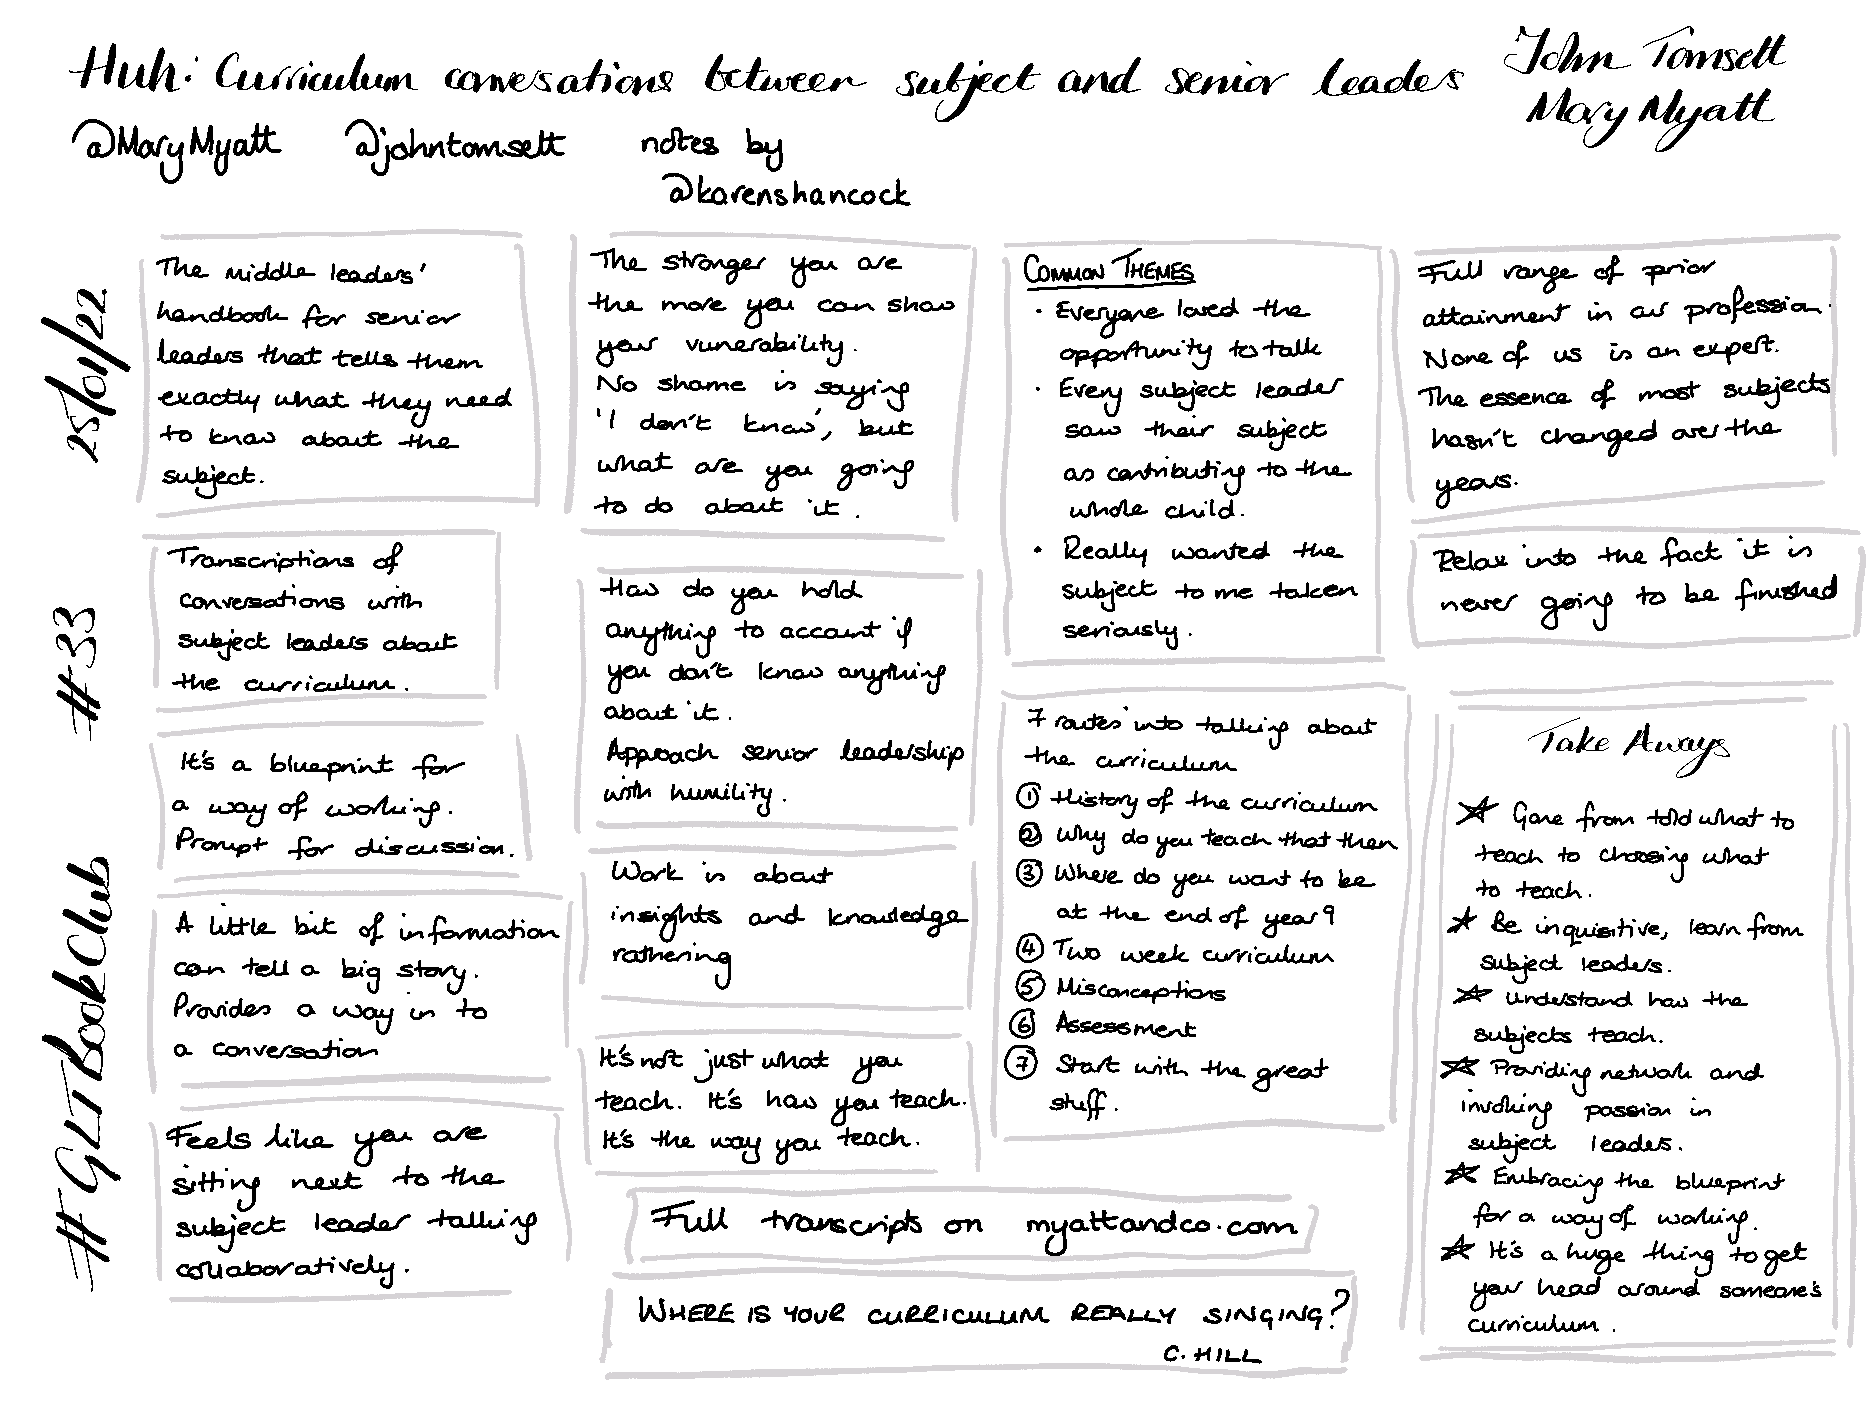 Huh: Curriculum convesations between subject and senior leades
John Tomsett
Mary Myatt
@MaryMyatt @johntomsett notes by
@karenshancock
25/01/22
#33
#GLTBookClub
The middle leaders'
handbook for senior
leaders that tells them
exactly what they need
to know about the
subject.
Transcriptions of
conversations with
subject leaders about
the curriculum.
It's a blueprint for
a way of working.
Prompt for discussion.
A little bit of information
can tell a big story.
Provides a way in to
a conversation
Feels like you are
sitting next to the
subject leader talking
collaboratively.
The stronger you are
the more you can show
your vunerability.
No shame is saying
'I don't know', but
what are you going
to do about it.
How do you hold
anything to account if
you don't know anything
about it.
Approach senior leadership
with humility.
Work is about
insights and knowledge
rathering
It's not just what you
teach. It's how you teach.
It's the way you teach.
Full transcripts on myattandco.com
WHERE IS YOUR CURRICULUM REALLY SINGING?
C. HILL
COMMON THEMES
• Everyone loved the
opportunity to talk
• Every subject leader
saw their subject
as contributing to the
whole child.
• Really wanted the
subject to me taken
seriously.
7 routes into talking about
the curriculum
① History of the curriculum
② Why do you teach that then
③ Where do you want to be
at the end of year 9
④ Two week curriculum
⑤ Misconceptions
⑥ Assessment
⑦ Start with the great
stuff.
Full range of prior
attainment in our profession.
None of us is an expert.
The essence of most subjects
hasn't changed over the
years.
Relax into the fact it is
never going to be finished
Take Aways
☆ Gone from told what to
teach to choosing what
to teach.
☆ Be inquisitive, learn from
subject leaders.
☆ Understand how the
subjects teach.
☆ Providing network and
invoking passion in
subject leaders.
☆ Embracing the blueprint
for a way of working.
☆ It's a huge thing to get
your head around someone's
curriculum.